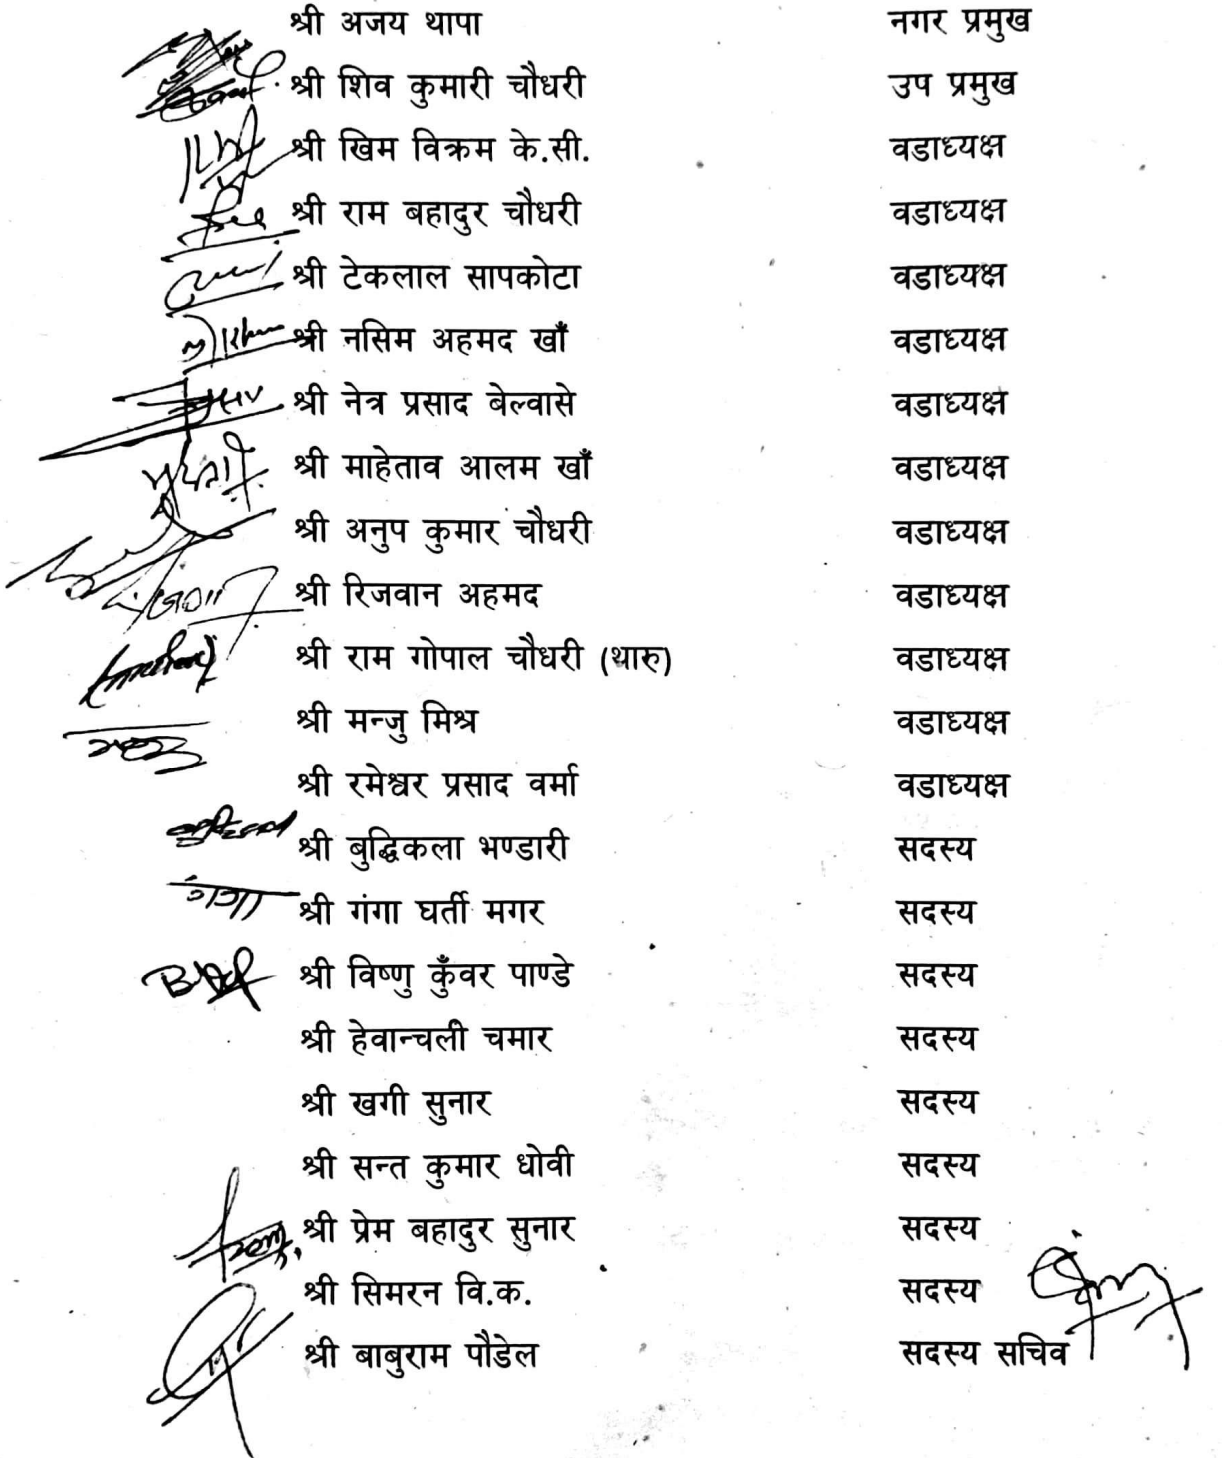 श्री अजय थापा नगर प्रमुख
श्री शिव कुमारी चौधरी उप प्रमुख
श्री खिम विक्रम के.सी. वडाध्यक्ष
श्री राम बहादुर चौधरी वडाध्यक्ष
श्री टेकलाल सापकोटा वडाध्यक्ष
श्री नसिम अहमद खाँ वडाध्यक्ष
श्री नेत्र प्रसाद बेल्वासे वडाध्यक्ष
श्री माहेताव आलम खाँ वडाध्यक्ष
श्री अनुप कुमार चौधरी वडाध्यक्ष
श्री रिजवान अहमद वडाध्यक्ष
श्री राम गोपाल चौधरी (थारु) वडाध्यक्ष
श्री मन्जु मिश्र वडाध्यक्ष
श्री रमेश्वर प्रसाद वर्मा वडाध्यक्ष
श्री बुद्धिकला भण्डारी सदस्य
गंगा श्री गंगा घर्ती मगर सदस्य
श्री विष्णु कुँवर पाण्डे सदस्य
श्री हेवान्चली चमार सदस्य
श्री खगी सुनार सदस्य
श्री सन्त कुमार धोवी सदस्य
श्री प्रेम बहादुर सुनार सदस्य
श्री सिमरन वि.क. सदस्य
श्री बाबुराम पौडेल सदस्य सचिव